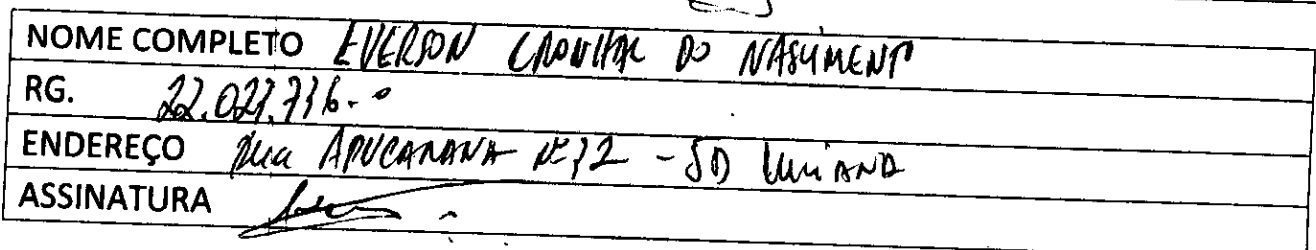 NOME COMPLETO EVERSON DO NASCIMENT
RG. 22.027.736-0
ENDEREÇO Rua APUCARANA Nº 72 - JD
ASSINATURA